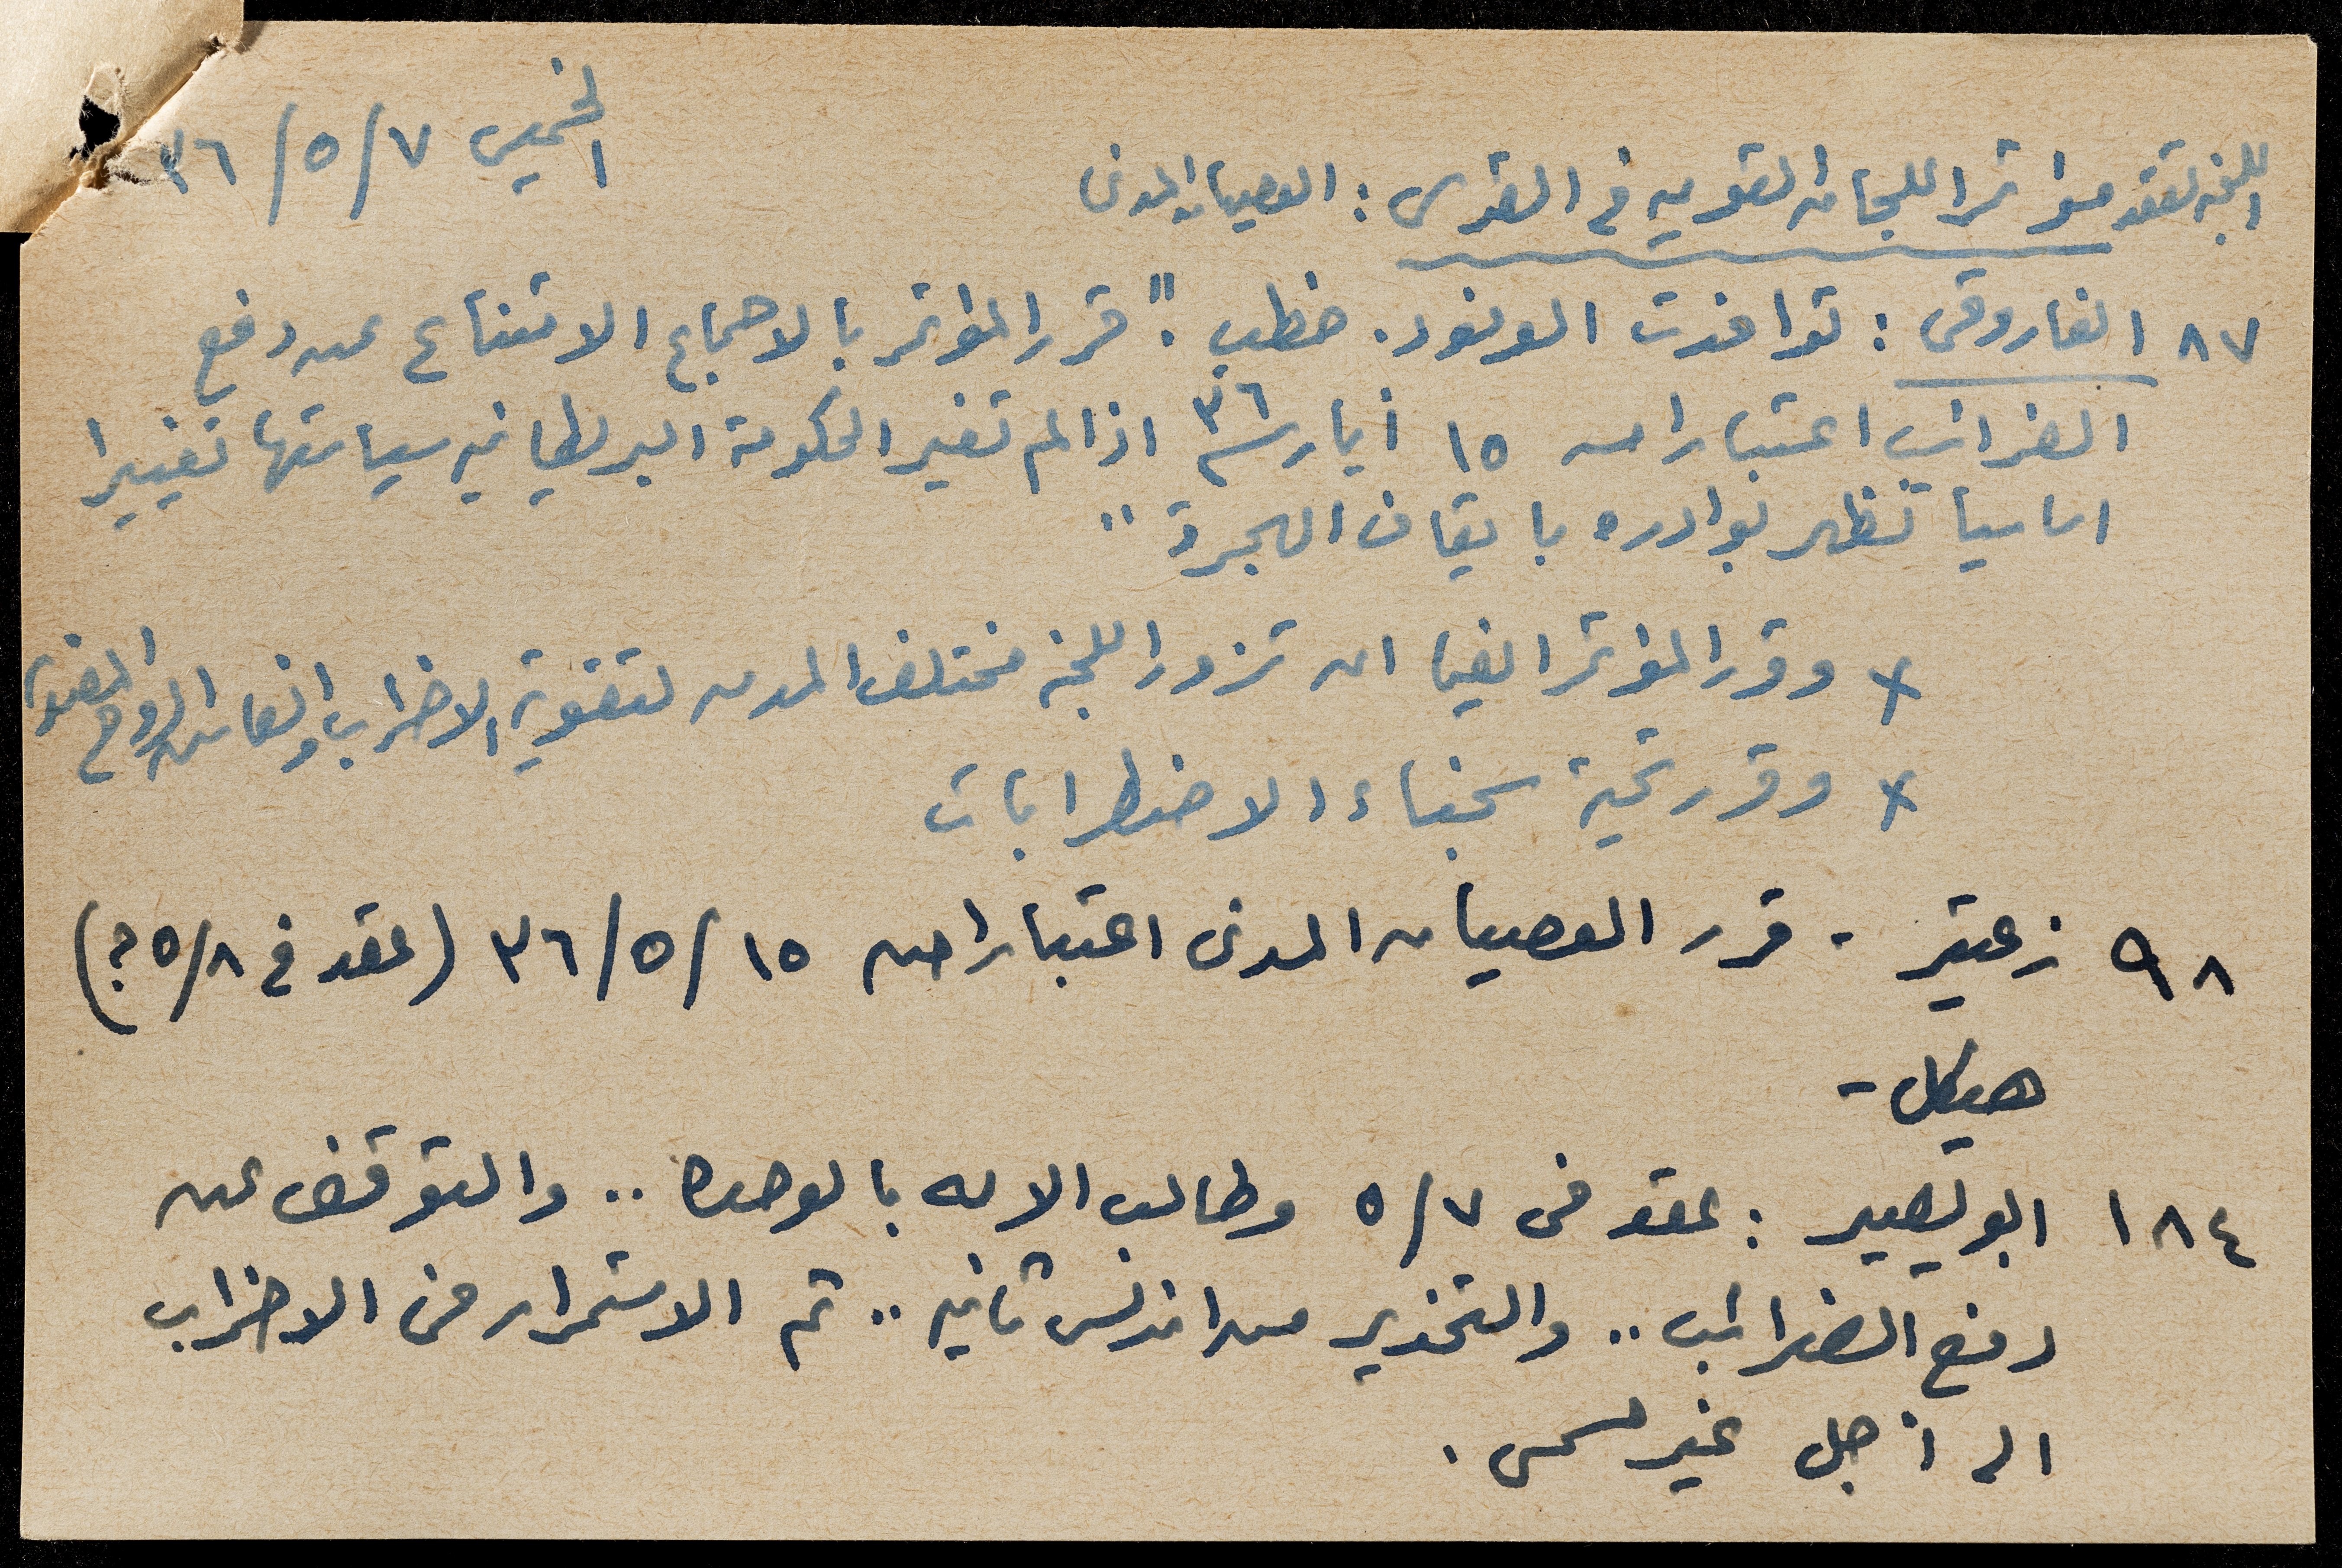 الخميس ٧/٥/٣٦
اللجنة تعقد مؤتمر اللجان القومية في القدس : العصيان المدني
٨٧ الفاروقي : توافدت الوفود. خطب. "قرر المؤتمر بالاجماع الامتناع عن دفع
الضرائب اعتبارا من ١٥ أيار سنة ٣٦ اذا لم تغير الحكومة البريطانية سياستها تغييرا
اساسيا تظهر بوادره بايقاف الهجرة"
x وقرر المؤتمر ايضا ان تزور اللجنة مختلف المدن لتقوية الاضراب وانعاش الروح المعنوية
x وقرر تحية سجناء الاضطرابات
٩٨ زعيتر - قرر العصيان المدني اعتبارا من ١٥/٥/٣٦ (عقد في ٥/٨ ؟)
هيكل -
١٨٤ ابو يصير : عقد في ٥/٧ وطالب الامه بالوحده .. والتوقف عن
دفع الضرائب .. والتحذير من اندلس ثانيه .. ثم الاستمرار في الاضراب
الى أجل غير مسمى .